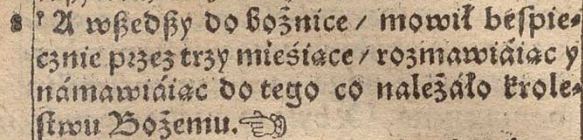 8 ᵗ A wßedßy do bożnice / mowił beſpie⸗
cznie przez trzy mieśiące / rozmawiáiąc y
námawiáiąc do tego co należáło krole⸗
ſtwu Bożemu. ☜